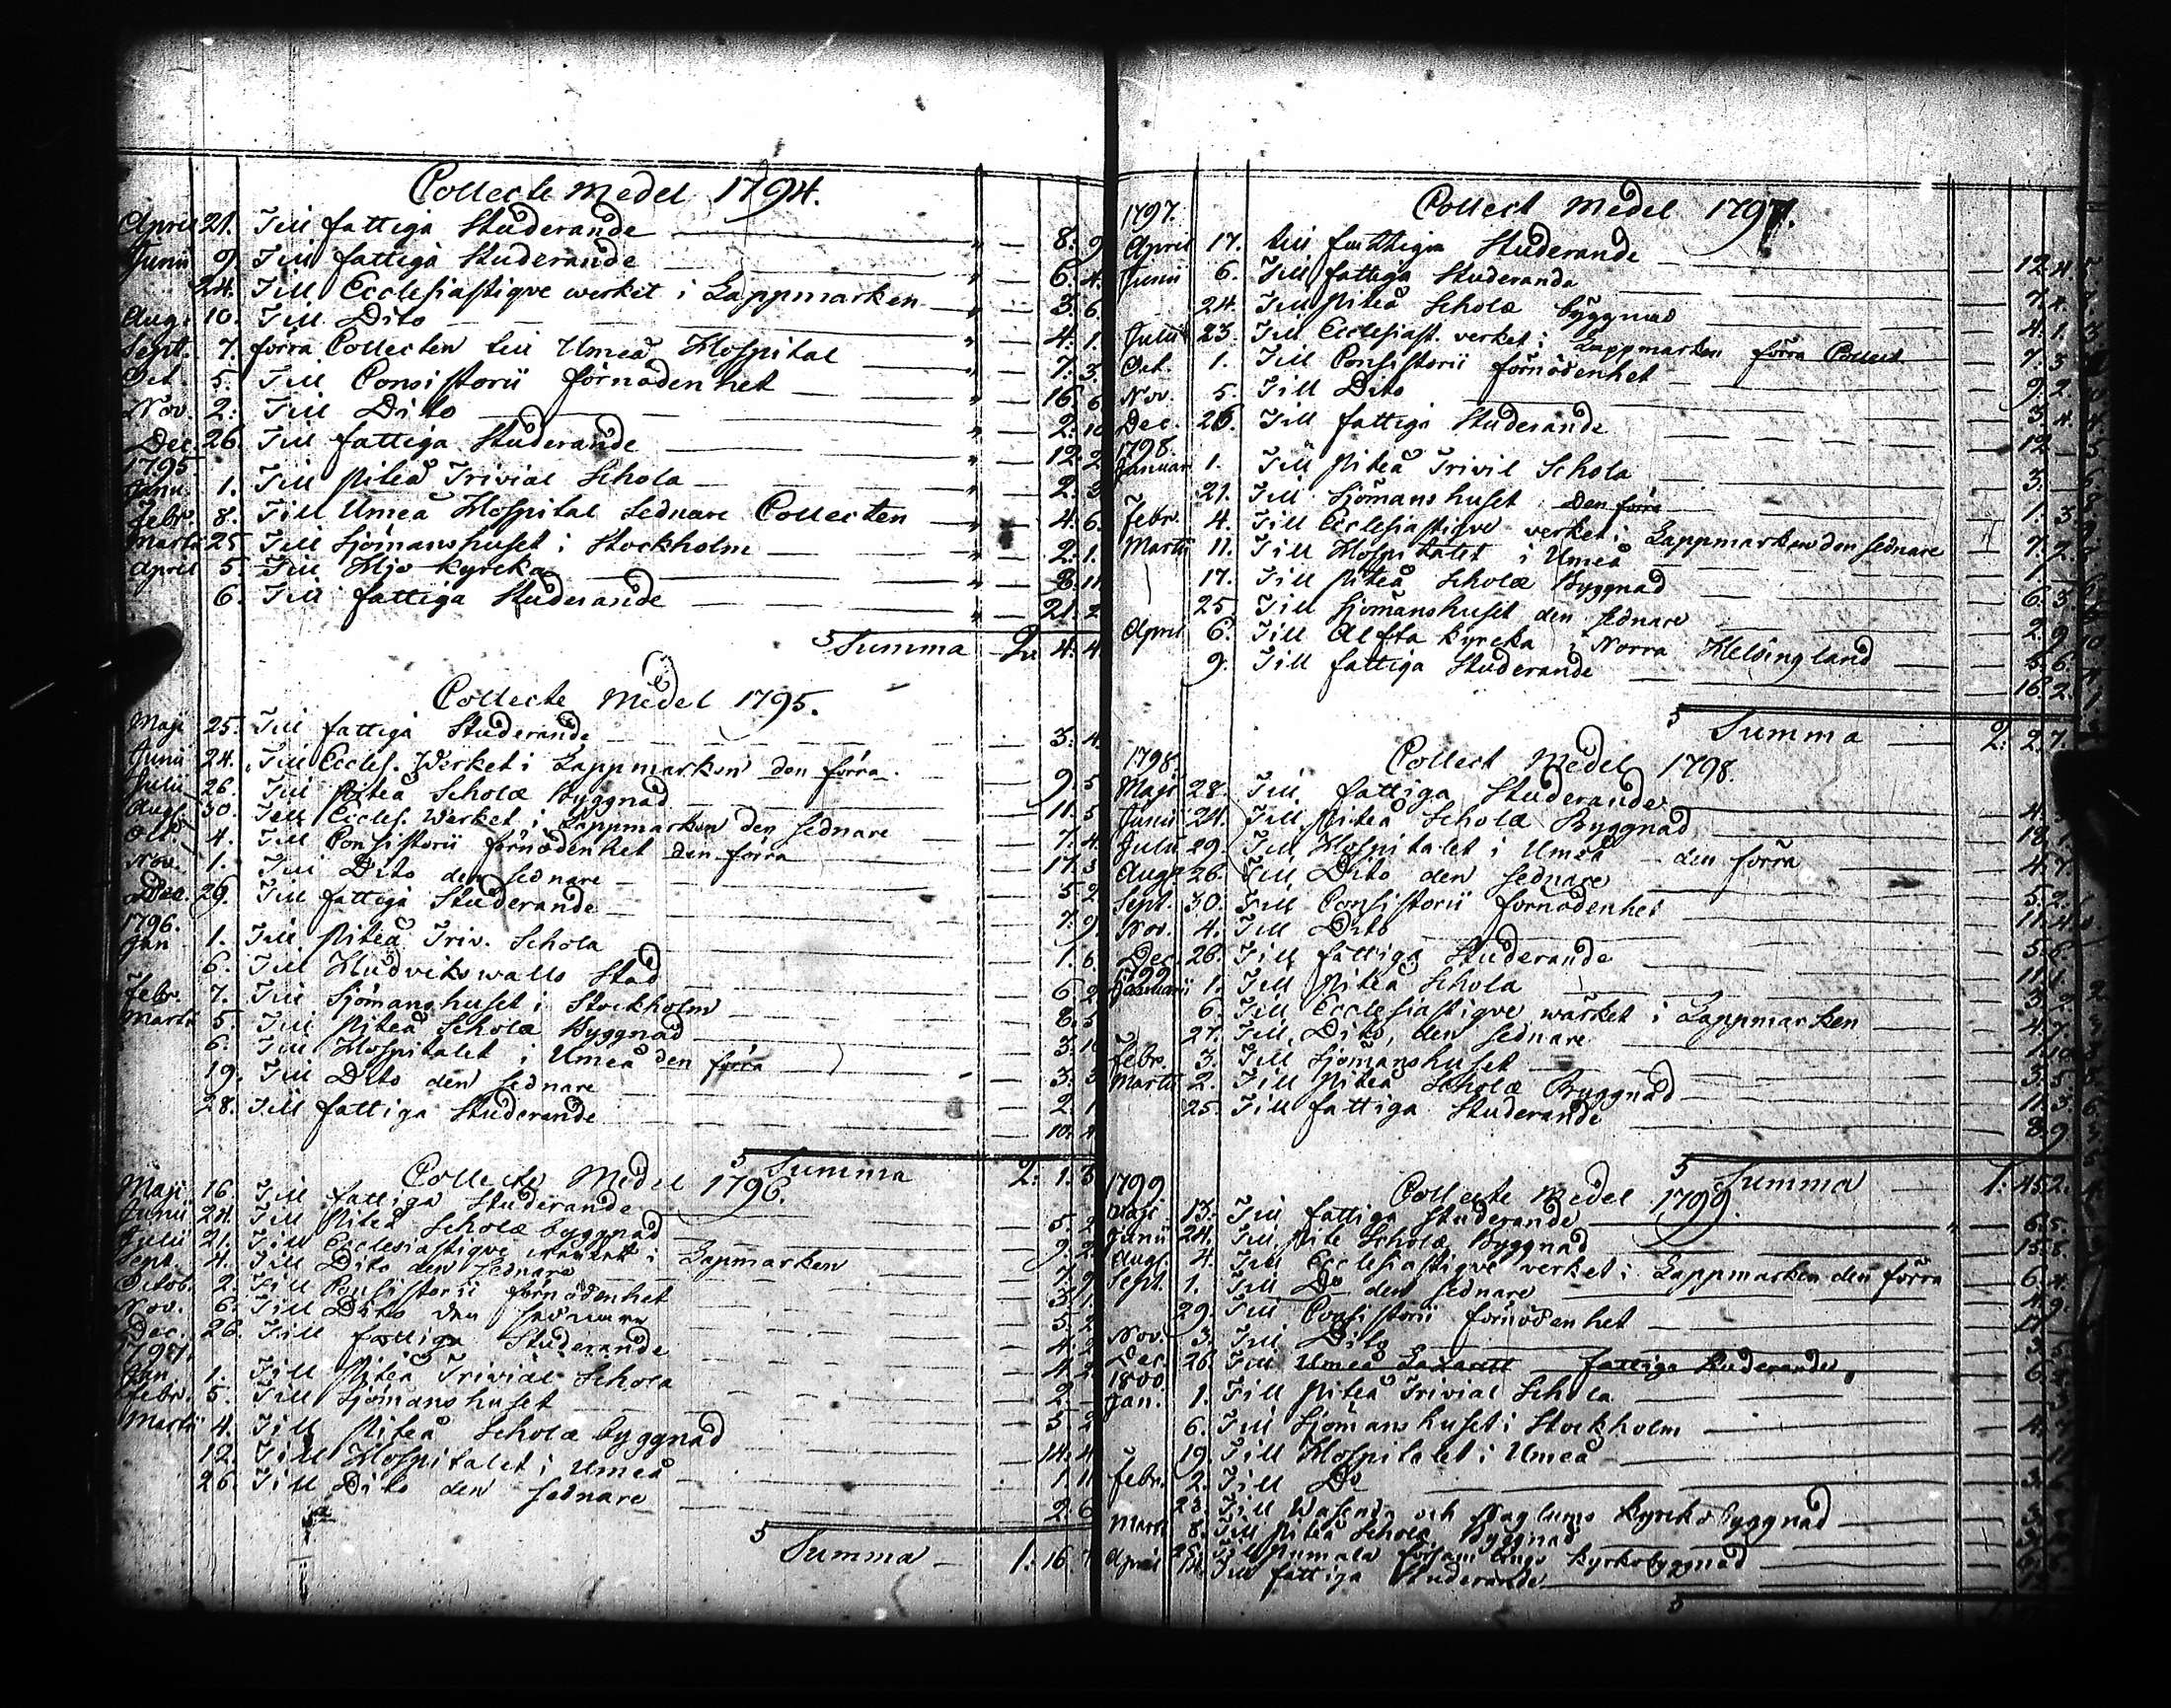 Collecte Medel 1794.
April 21. Till fattiga Studerande " — 8. 9
Junii 9. Till fattiga Studerande " — 6. 4.
24. Till Ecclesiastiqve werket i Lappmarken " — 3. 6
Aug. 10. Till Dito " — 4. 1.
Sept. 7. förra Collecten till Umeå Hospital " — 7. 3.
Oct. 5. Till Consistorii förnödenhet " — 16. 6
Nov. 2. Till Dito " — 2. 10
Dec. 26. Till fattiga Studerande " — 12. 2
1795
Janu. 1. Till Piteå Trivial Schola " — 2. 3
Febr. 8. Till Umeå Hospital Sednare Collecten " — 4. 6.
Martii 25 Till Sjömanshuset i Stockholm " — 2. 1.
April 5. Till Hjo Kyrcka " — 8. 11
6. Till fattiga Studerande " — 21. 2
Summa 2. 4. 4
Collecte Medel 1795.
Maji 25. Till fattiga Studerande — 3. 4.
Junii 24. Till Eccles. Werket i Lappmarken den förra — 9. 5
Julii 26. Till Piteå Scholæ Byggnad — 11. 5
Aug. 30. Till Eccles. Werket i Lappmarken den Sednare — 7. 4.
Oct. 4. Till Consistorii förnödenhet den förra — 17. 3
Nov. 1. Till Dito den Sednare — 5. 2
Dec. 29. Till fattiga Studerande — 7. 9
1796.
Jan 1. Till Piteå Triv. Schola — 1. 6
6. Till Hudvikswalls Stad — 6. 2
Febr. 7. Till Sjömanshuset i Stockholm — 8. 5
Martii 5. Till Piteå Scholæ Byggnad — 3. 10
6. Till Hospitalet i Umeå den förra — 3. 3
19. Till Dito den Sednare — 2. 1
28. Till fattiga Studerande — 10. 4
Summa 2. 1. 3
Collecte Medel 1796.
Maji. 16. Till fattiga Studerande — 5. 2
Junii 24. Till Piteå Scholæ byggnad — 9. 2
Julii 21. Till Ecclesiastiqve i Lapmarken — 7. 9
Sept. 4. Till Dito den Sednare — 3. 1.
Octob. 2. Till Consistorii förnödenhet — 5. 2
Nov. 6. Till Dito den Sednare — 4. 2
Dec. 26. Till fattiga Studerande — 4. 2
1797.
Jan 1. Till Piteå Trivial Schola — 2.
Febr. 5. Till Sjömanshuset — 5 2
Martii 4. Till Piteå Scholæ byggnad — 14. 4
12. Till Hospitalet i Umeå — 1. 11
26. Till Dito den Sednare — 2. 6
Summa — 1. 16.
1797. Collect Medel 1797.
April 17. till fattiga Studerande — 12. 4.
Junii 6. Till fattiga Studerande — 7. 4.
24. Till Piteå Scholæ byggnad — 4. 1.
Julii 23. Till Ecclesiast. verket i Lappmarken förra Collect — 7. 3
Oct. 1. Till Consistorii förnödenhet — 9. 2
Nov. 5. Till Dito — 3. 4.
Dec. 26. Till fattiga Studerande — 12
1798.
Januari 1. Till Piteå Trivil Schola — 3.
21. Till Sjömanshuset den förra — 1. 3
Febr. 4. Till Ecclesiastiqve verket i Lappmarken den Sednare — 7. 2.
Martii 11. Till Hospitalet i Umeå — 1.
17. Till Piteå Scholæ Byggnad — 6. 3
25 Till Sjömanshuset den Sednare — 2. 9
April 6. Till Alfta Kyrcka i Norra Helsingland — 5. 6.
9. Till fattiga Studerande — 16. 2.
Summa — 2. 2. 7.
1798. Collect Medel 1798.
Maji 28. Till fattiga Studerande — 4.
Junii 24. Till Piteå Scholæ Byggnad — 18. 1
Julii 29. Till Hospitalet i Umeå den förra — 4. 7.
Aug. 26. Till Dito den Sednare — 5. 2.
Sept. 30. Till Consistorii förnödenhet — 11. 4
Nov. 4. Till Dito — 5. 6.
Dec. 26. Till fattiga Studerande — 11. 1.
1799
Januarii 1. Till Piteå Schola — 3. 2.
6. Till Ecclesiastiqve wärket i Lappmarken — 4. 7.
27. Till Dito, den Sednare — 1. 10
Febr. 3. Till Sjömanshuset — 3. 5
Martii 2. Till Piteå Scholæ Byggnad — 11. 3.
25. Till fattiga Studerande — 8. 9
Summa — 1. 45. 2.
1799. Collecte Medel 1799.
Maji 13. Till fattiga Studerande — 6. 5.
Junii 24. Till Pite Scholæ Byggnad — 15. 8.
Aug. 4. Till Ecclesiastiqve verket i Lappmarken den förra — 6. 4.
Sept. 1. Till Do den Sednare — 4. 9.
29. Till Consistorii förnödenhet — 17.
Nov. 3. Till Dito — 3.
Dec. 26. Till Umeå Lazarett fattiga Studerande — 6.
1800
Jan. 1. Till Piteå Trivial Schola
6. Till Sjömanshuset i Stockholm — 4.
19. Till Hospitalet i Umeå
Febr. 2. Till Do — 3.
23. Till och Kyrko byggnad
Marti 8. Till Piteå Schola Byggnad
25. Till Pumala församlings Kyrkobyggnad
April 14. Till fattiga Studerande